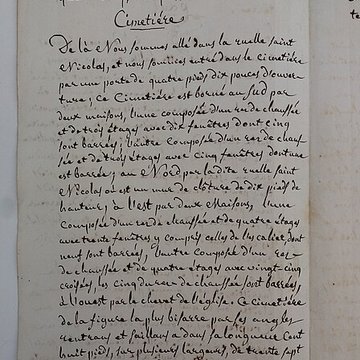 Cimetiére
De là Nous sommes allé dans la ruelle saint
Nicolas, et nous sommes entré dans le cimetiére
par une porte de quatre pieds dix pouces d'ouver-
ture; ce Cimetiére est borné au sud par
deux maisons, l'une composée d'un rez de chaussée
et de trois étages avec dix fenêtres dont cinq
sont barrées; l'autre Composée d'un rez de chaus-
sée et de trois étages avec cinq fenêtres dont une
est barrée; au Nord par la dite ruelle saint
Nicolas où est un mur de clôture de dix pieds de
hauteur; à l'est par deux Maisons, l'une
Composée d'un rez de chaussée et de quatre étages
avec trente fenêtres y compris celles de l'escalier dont
neuf sont barrées, l'autre composée d'un rez-
de chaussée et de quatre étages avec vingt-cinq
croisées, les cinq du rez de chaussée sont barrées,
à l'ouest par le chevet de l'église. Ce cimetiére
de la figure la plus bizarre par ses angles
rentrans et saillans a dans sa longueur Cent
huit pieds, sur plusieurs largeurs, de trente sept